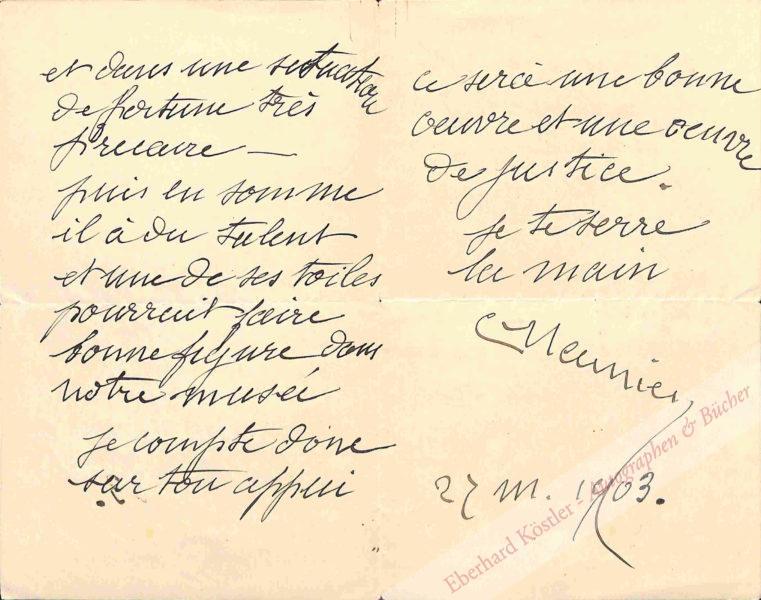 et dans une situation
de fortune très
précaire —
puis en somme
il à du talent
et une de ses toiles
pourrait faire
bonne figure dans
notre musée
je compte donc
sur ton appui
ce sera une bonne
œuvre et une œuvre
de justice.
je te serre
la main
CMeunier
27 M. 1903.
Eberhard Köstler - Autographen & Bücher